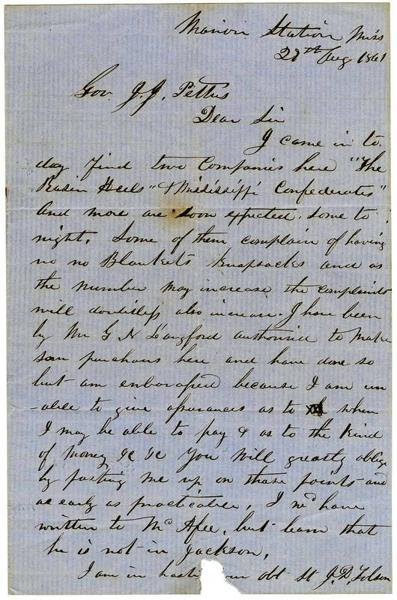 Marion Station Miss
27th Aug 1861
Gov. J. J. Pettus
Dear Sir
I came in to
day find two Companies here "The
Rasin Heels" & "Mississippi Confederates"
And more are soon expected. Some to
night. Some of them complain of having
no no Blankets Knapsacks and as
the number may increase the complaints
will doubtless also increase. I have been
by Mr G N Langford authorised to make
som purchases here and have done so
but am embarassed because I am un
-able to give assurances as to when
I may be able to pay & as to the Kind
of money &c &c You will greatly oblige
by posting me up on those points and
as early as practicable, I wd have
written to Mc Afee, but learn that
he is not in Jackson,
I am in haste obt St J. D.